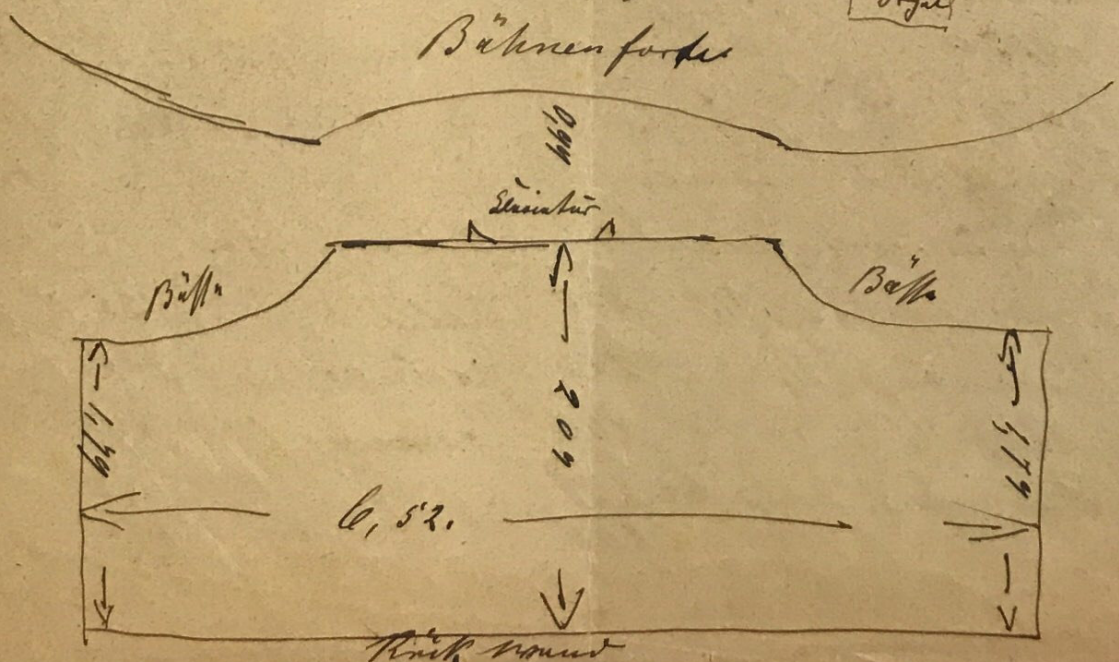 Orgel
Bühnenforte
0,94
Claviatur
Bässe
Bässe
1,79
209
1,79
6,52.
Rückwand